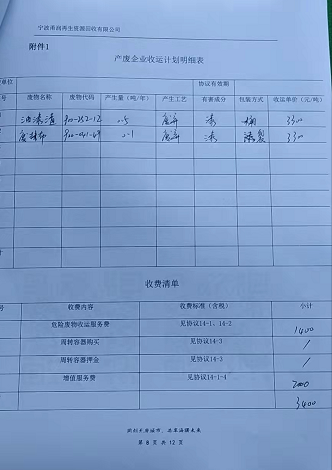 宁波甬润再生资源回收有限公司
附件1
产废企业收运计划明细表
单位 协议有效期
号 废物名称 废物代码 产生量(吨/年) 产生工艺 有害成分 包装方式 收运单价(元/吨)
油漆渣 900-252-12 0.5 废弃 漆 桶 3300
900-041-49 0.1 废弃 漆 3300
收费清单
号 收费内容 收费标准(含税) 小计
危险废物收运服务费 见协议14-1、14-2 1400
周转容器购买 见协议14-3 /
周转容器押金 见协议14-3 /
增值服务费 见协议14-1~4 2000
3400
第 8 页 共 12 页